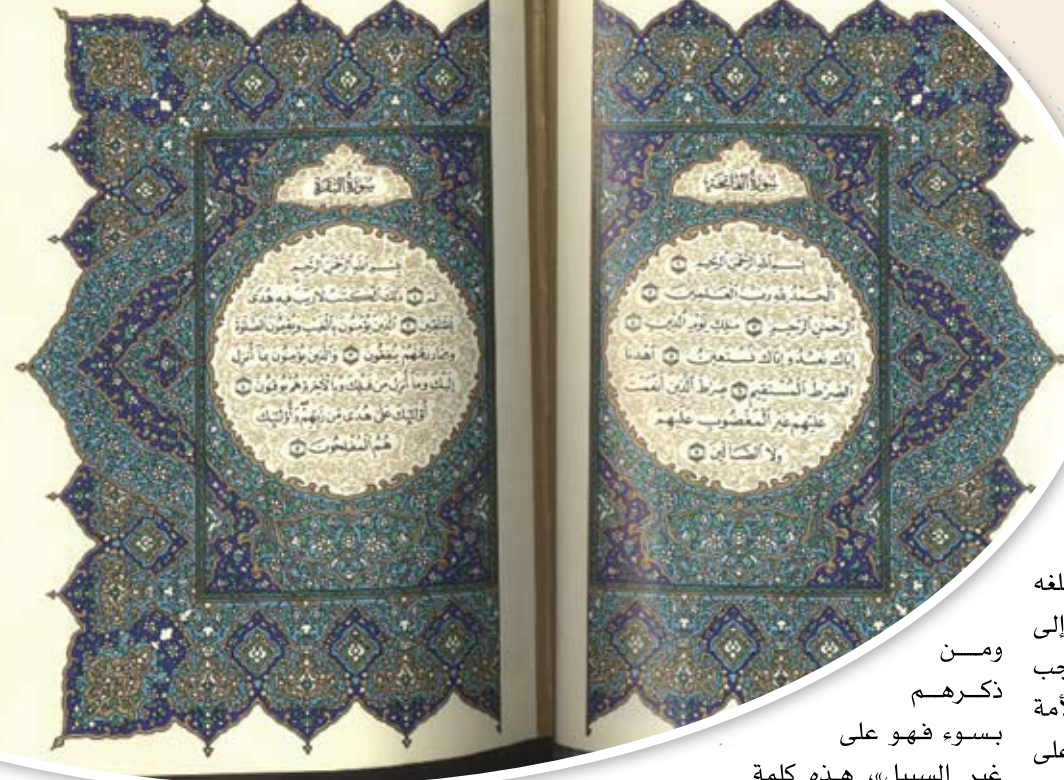 سورة الفاتحة
بسم الله الرحمن الرحيم ۝
الحمد لله رب العلمين ۝
الرحمن الرحيم ۝ ملك يوم الدين ۝
إياك نعبد وإياك نستعين ۝ اهدنا
الصرط المستقيم ۝ صرط الذين أنعمت
عليهم غير المغضوب عليهم
ولا الضالين ۝
سورة البقرة
بسم الله الرحمن الرحيم
الم ۝ ذلك الكتب لا ريب فيه هدى
للمتقين ۝ الذين يؤمنون بالغيب ويقيمون الصلوة
ومما رزقنهم ينفقون ۝ والذين يؤمنون بما أنزل
إليك وما أنزل من قبلك وبالآخرة هم يوقنون ۝
أولئك على هدى من ربهم وأولئك
هم المفلحون ۝
لفه
إلى
جب
لأمة
على
ومــن
ذكـرهـم
بسوء فهو على
غير السبيل»، هذه كلمة